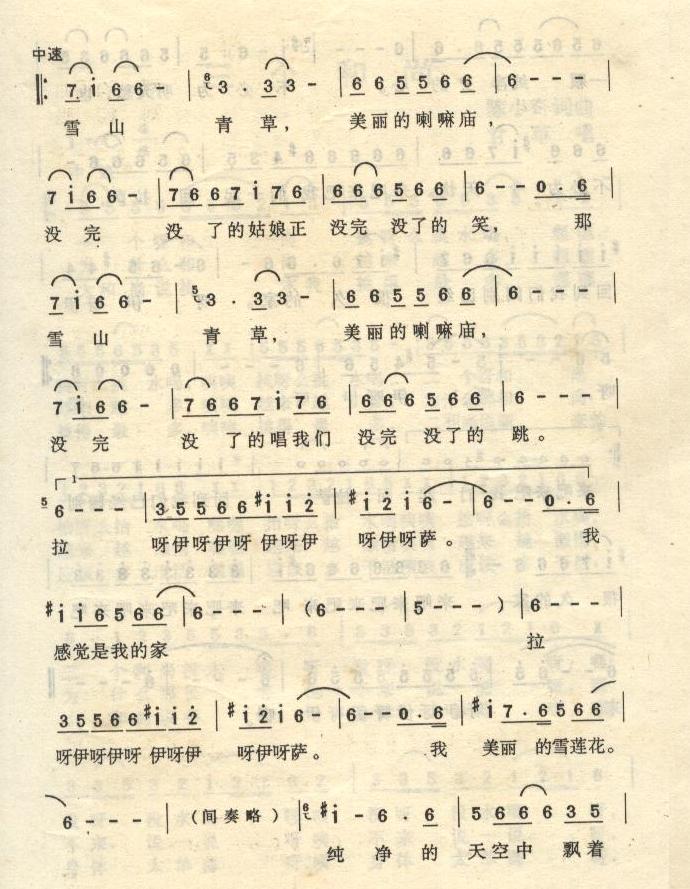 中速
7 i 6 6 - | 3 · 3 3 - | 6 6 5 5 6 6 | 6 - - - |
雪 山 青 草， 美丽的喇嘛庙，
7 i 6 6 - | 7 6 6 7 i 7 6 | 6 6 6 5 6 6 | 6 - - 0 . 6 |
没 完 没 了的姑娘正 没完 没了的 笑， 那
7 i 6 6 - | 3 · 3 3 - | 6 6 5 5 6 6 | 6 - - - |
雪 山 青 草， 美丽的喇嘛庙，
7 i 6 6 - | 7 6 6 7 i 7 6 | 6 6 6 5 6 6 | 6 - - - |
没 完 没 了的唱我们 没完 没了的 跳。
1
5 6 - - - | 3 5 5 6 6 #i i 2 | #i 2 i 6 - | 6 - - 0 . 6 |
拉 呀伊呀伊呀 伊呀伊 呀伊呀萨。 我
#i i 6 5 6 6 | 6 - - - | (6 - - - | 5 - - - ) | 6 - - - |
感觉是我的家 拉
3 5 5 6 6 #i i 2 | #i 2 i 6 - | 6 - - 0 . 6 | #i 7 . 6 5 6 6 |
呀伊呀伊呀 伊呀伊 呀伊呀萨。 我 美丽 的雪莲花。
6 - - - | (间奏略) | 6 #i - 6 . 6 | 5 6 6 6 3 5 |
纯 净 的 天空中 飘着